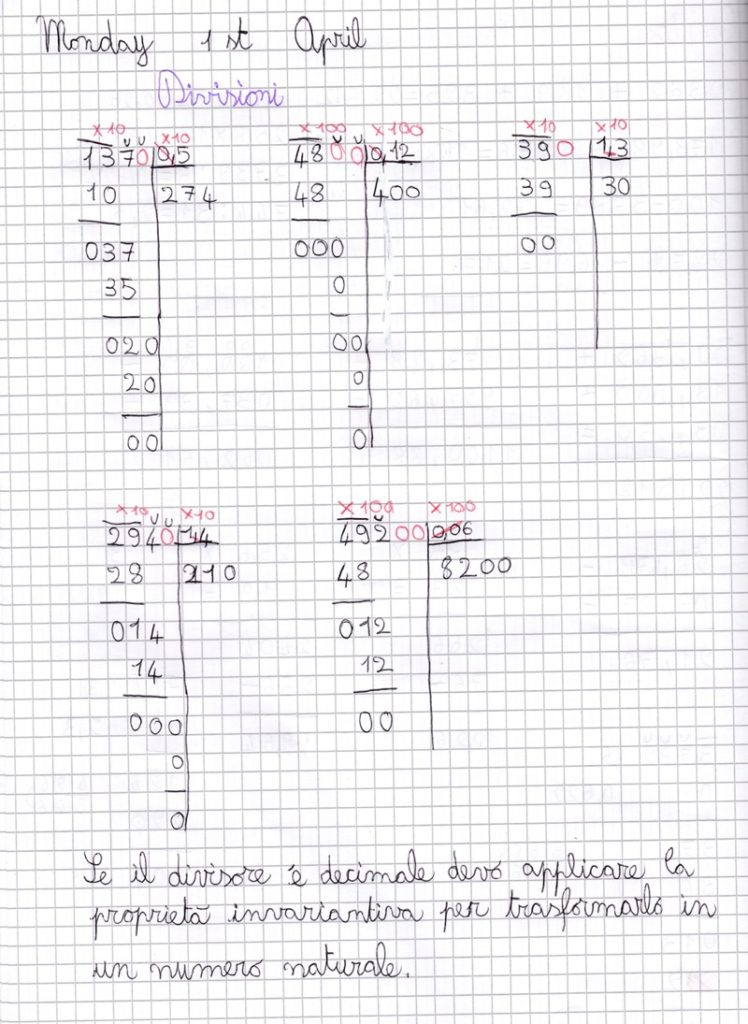 Monday 1st April
Divisioni
×10 ×10 ×100 ×100 ×10 ×10
1370 0,5 4800 0,12 390 1,3
10 274 48 400 39 30
037 000 00
35 0
020 00
20 0
00 0
×10 ×10 ×100 ×100
2940 1,4 49200 0,06
28 210 48 8200
014 012
14 12
000 00
0
0
Se il divisore è decimale devo applicare la
proprietà invariantiva per trasformarlo in
un numero naturale.